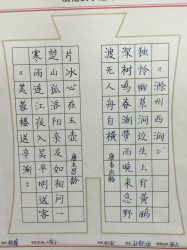 。滁州西涧。
独怜幽草涧边生上有黄鹂
深树鸣春潮带雨晚来急野
渡无人舟自横
唐韦应物
。芙蓉楼送辛渐。
寒雨连江夜入吴平明送客
楚山孤洛阳亲友如相问一
片冰心在玉壶
唐王昌龄